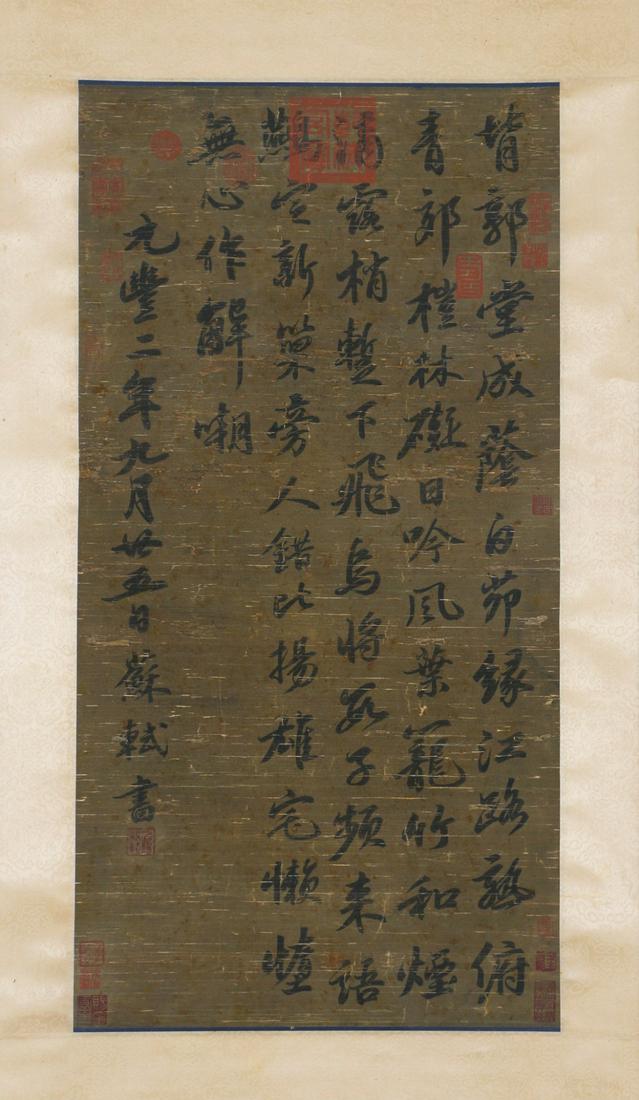 背郭堂成蔭白茆緣江路熟俯
青郊榿林礙日吟風葉籠竹和煙
滴露梢暫下飛烏將數子頻來語
鷰定新巢旁人錯比揚雄宅懶惰
無心作解嘲
元豐二年九月廿五日蘇軾書